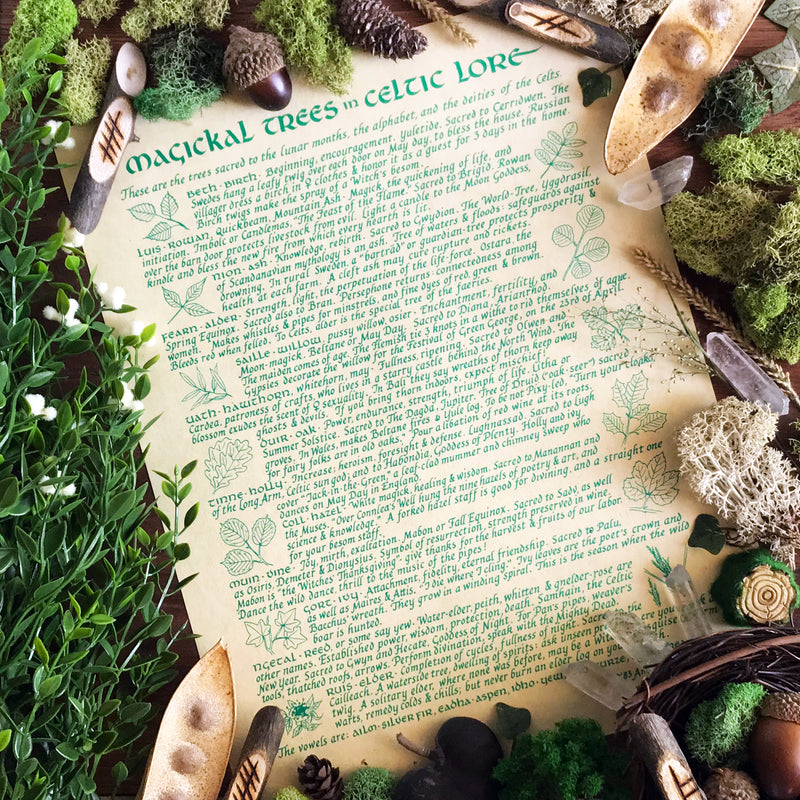 magickal trees in celtic lore
These are the trees sacred to the lunar months, the alphabet, and the deities of the Celts.
Beth-Birch. Beginning, encouragement, yuletide. Sacred to Cerridwen. The
Swedes hang a leafy twig over each door on May day, to bless the house. Russian
villager dress a birch in ♀ clothes & honor it as a guest for 3 days in the home.
Birch twigs make the spray of a Witch's besom.
Luis-Rowan, Quickbeam, Mountain Ash. Magick, the quickening of life, and
initiation. Imbolc or Candlemas, "The Feast of the Flame." Sacred to Brigid. Rowan
over the barn door protects livestock from evil. Light a candle to the Moon Goddess,
kindle and bless the new fire from which every hearth is lit.
Nion-Ash. Knowledge, rebirth. Sacred to Gwydion. The World-Tree, Yggdrasil,
of Scandinavian mythology is an ash. Tree of waters & floods: safeguards against
drowning. In rural Sweden, a "bartrad" or guardian-tree protects prosperity &
health at each farm. A cleft ash may cure rupture and rickets.
Fearn-Alder. Strength, light, the perpetuation of the life-force. Ostara, the
Spring Equinox. Sacred also to Bran. Persephone returns: connectedness among
women. Makes whistles & pipes for minstrels, and fine dyes of red, green & brown.
Bleeds red when felled. To Celts, alder is the special tree of the faeries.
Saille-Willow, pussy willow, osier. Enchantment, fertility, and
Moon-magick. Beltane or May Day. Sacred to Diana, Arianrhod.
The maiden comes of age. The Flemish tie 3 knots in a withe to rid themselves of ague.
Gypsies decorate the willow for the Festival of Green George, on the 23rd of April.
Uath-Hawthorn, whitehorn, may. Fullness, ripening. Sacred to Olwen and
Cardea, patroness of crafts, who lives in a starry castle behind the North Wind. The
blossom exudes the scent of ♀ sexuality. In Bali they say wreaths of thorn keep away
ghosts & devils. If you bring thorn indoors, expect mischief!
Duir-Oak. Power, endurance, strength, triumph of life. Litha or
Summer Solstice. Sacred to The Dagda, Jupiter. Tree of Druid (oak-seer's) sacred
groves. In Wales, makes Beltane fires & yule log. To be not Pixy-led: "Turn your cloaks,
for fairy folks are in old oaks." Pour a libation of red wine at its roots.
Tinne-Holly. Increase, heroism, foresight & defense. Lughnassad. Sacred to Lugh
of the Long Arm, Celtic sun god; and to Habondia, Goddess of Plenty. Holly and ivy
cover "Jack-in-the-Green," a leaf-clad mummer and chimney sweep who
dances on May Day in England.
Coll-Hazel. White magick, healing & wisdom. Sacred to Manannan and
the Muses. "Over Connlea's Well hung the nine hazels of poetry & art, and
science & knowledge." A forked hazel staff is good for divining, and a straight one
for your besom staff.
Muin-Vine. Joy, mirth, exaltation. Mabon or Fall Equinox. Sacred to Sady, as well
as Osiris, Demeter & Dionysius. Symbol of resurrection, strength preserved in wine.
Mabon is "the Witches' Thanksgiving," give thanks for the harvest & fruits of our labor.
Dance the wild dance, thrill to the music of the pipes!
Gort-Ivy. Attachment, fidelity, eternal friendship. Sacred to Palu,
as well as Maires & Attis. "I die where I cling." Ivy leaves are the poet's crown and
Bacchus' wreath. They grow in a winding spiral. This is the season when the wild
boar is hunted.
Ngetal-Reed, or some say yew. Water-elder, peith, whitten, & guelder-rose are
other names. Established power, wisdom, protection, death. Samhain, the Celtic
New Year. Sacred to Gwyn and Hecate, Goddess of Night. For Pan's pipes, weaver's
tools, thatched roofs, arrows. Perform divination, speak with the Mighty Dead.
Ruis-Elder. Completion of cycles, fullness of night. Sacred to the
Cailleach. A waterside tree, dwelling of spirits: ask unseen permission ere you
twig. A solitary elder, where none was before, may be a
warts, remedy colds & chills; but never burn an elder log
The vowels are: ailm-silver fir, eadha-aspen, idho-yew